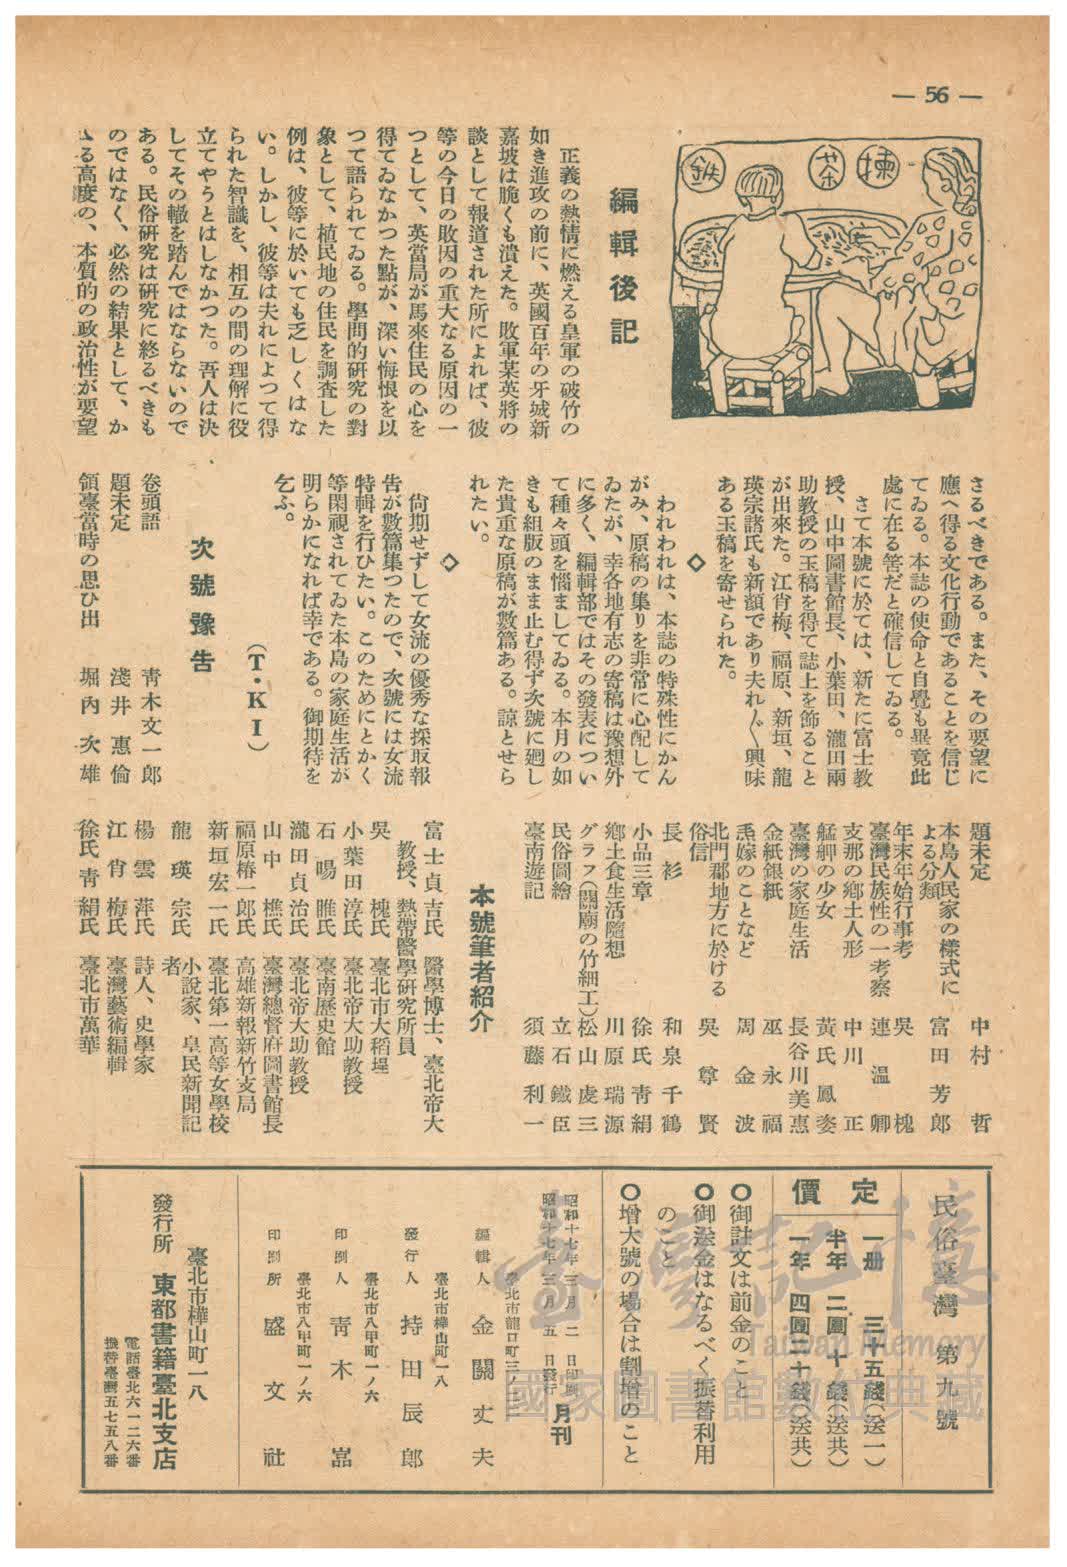 — 56 —
揀
茶
編輯後記
正義の熱情に燃える皇軍の破竹の
如き進攻の前に、英國百年の牙城新
嘉坡は脆くも潰えた。敗軍某英將の
談として報道された所によれば、彼
等の今日の敗因の重大なる原因の一
つとして、英當局が馬來住民の心を
得てゐなかつた點が、深い悔恨を以
つて語られてゐる。學問的研究の對
象として、植民地の住民を調査した
例は、彼等に於いても乏しくはな
い。しかし、彼等は夫れによつて得
られた智識を、相互の間の理解に役
立てやうとはしなかつた。吾人は決
してその轍を踏んではならないので
ある。民俗研究は研究に終るべきも
のではなく、必然の結果として、か
ゝる高度の、本質的の政治性が要望
さるべきである。また、その要望に
應へ得る文化行動であることを信じ
てゐる。本誌の使命と自覺も畢竟此
處に在る筈だと確信してゐる。
さて本號に於ては、新たに富士教
授、山中圖書館長、小葉田、瀧田兩
助教授の玉稿を得て誌上を飾ること
が出來た。江肖梅、福原、新垣、龍
瑛宗諸氏も新顏であり夫れ〲興味
ある玉稿を寄せられた。
◇
われわれは、本誌の特殊性にかん
がみ、原稿の集りを非常に心配して
ゐたが、幸各地有志の寄稿は豫想外
に多く、編輯部ではその發表につい
て種々頭を惱ましてゐる。本月の如
きも組版のまま止む得ず次號に廻し
た貴重な原稿が數篇ある。諒とせら
れたい。
◇
尙期せずして女流の優秀な採取報
告が數篇集つたので、次號には女流
特輯を行ひたい。このためにとかく
等閑視されてゐた本島の家庭生活が
明らかになれば幸である。御期待を
乞ふ。
(T・KI)
次號豫告
卷頭語 靑木文一郎
題未定 淺井惠倫
領臺當時の思ひ出 堀內次雄
題未定 中村哲
本島人民家の樣式に
よる分類 富田芳郎
年末年始行事考 吳槐
臺灣民族性の一考察 連溫卿
支那の鄕土人形 中川正
艋舺の少女 黃氏鳳姿
臺灣の家庭生活 長谷川美惠
金紙銀紙 巫永福
𤆬嫁のことなど 周金波
北門郡地方に於ける
俗信 吳尊賢
長衫 和泉千鶴
小品三章 徐氏靑絹
鄕土食生活隨想 川原瑞源
グラフ(關廟の竹細工) 松山虔三
民俗圖繪 立石鐵臣
臺南遊記 須藤利一
本號筆者紹介
富士貞吉氏 醫學博士、臺北帝大
教授、熱帶醫學研究所員
吳槐氏 臺北市大稻埕
小葉田淳氏 臺北帝大助教授
石暘睢氏 臺南歷史館
瀧田貞治氏 臺北帝大助教授
山中樵氏 臺灣總督府圖書館長
福原椿一郎氏 高雄新報新竹支局
新垣宏一氏 臺北第一高等女學校
龍瑛宗氏 小說家、皇民新聞記
者
楊雲萍氏 詩人、史學家
江肖梅氏 臺灣藝術編輯
徐氏靑絹氏 臺北市萬華
民俗臺灣 第九號
定價
一册 三十五錢(送一)
半年 二圓十錢(送共)
一年 四圓二十錢(送共)
○御註文は前金のこと
○御送金はなるべく振替利用
のこと
○增大號の場合は割增のこと
昭和十七年三月二日印刷
昭和十七年三月五日發行
月刊
編輯人 金關丈夫
臺北市樺山町一八
發行人 持田辰郎
臺北市八甲町一ノ六
印刷人 靑木嵓
臺北市八甲町一ノ六
印刷所 盛文社
臺北市樺山町一八
發行所 東都書籍臺北支店
電話臺北六一二六番
振替臺灣五七五八番
臺灣記憶
Taiwan Memory
國家圖書館數位典藏